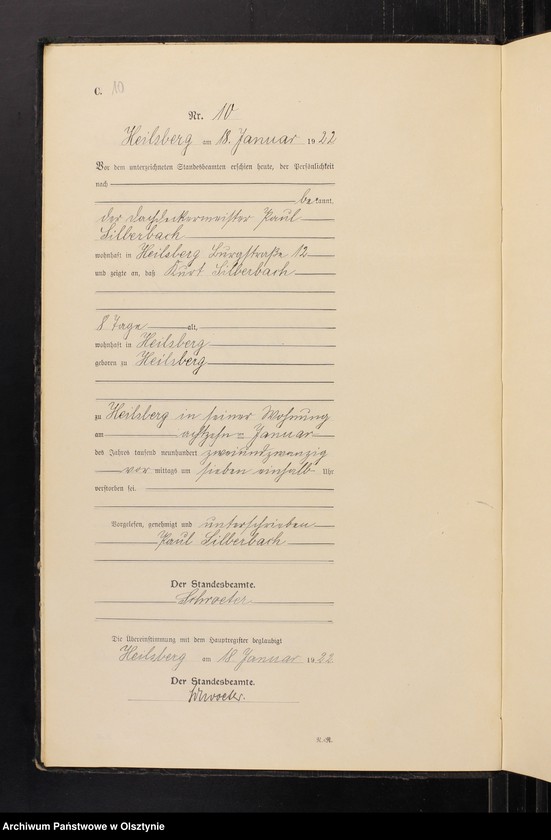 C. 10
Nr. 10
Heilsberg am 18. Januar 1922
Vor dem unterzeichneten Standesbeamten erschien heute, der Persönlichkeit
nach
bekannt,
der Dachdeckermeister Paul
Silberbach
wohnhaft in Heilsberg Burgstraße 12
und zeigte an, daß Kurt Silberbach
8 Tage alt,
wohnhaft in Heilsberg
geboren zu Heilsberg
zu Heilsberg in seiner Wohnung
am achtzehn ten Januar
des Jahres tausend neunhundert zweiundzwanzig
vor mittags um sieben einhalb Uhr
verstorben sei.
Vorgelesen, genehmigt und unterschrieben
Paul Silberbach
Der Standesbeamte.
Schroeter
Die Übereinstimmung mit dem Hauptregister beglaubigt
Heilsberg am 18 Januar 1922
Der Standesbeamte.
Schroeter.
Archiwum Państwowe w Olsztynie